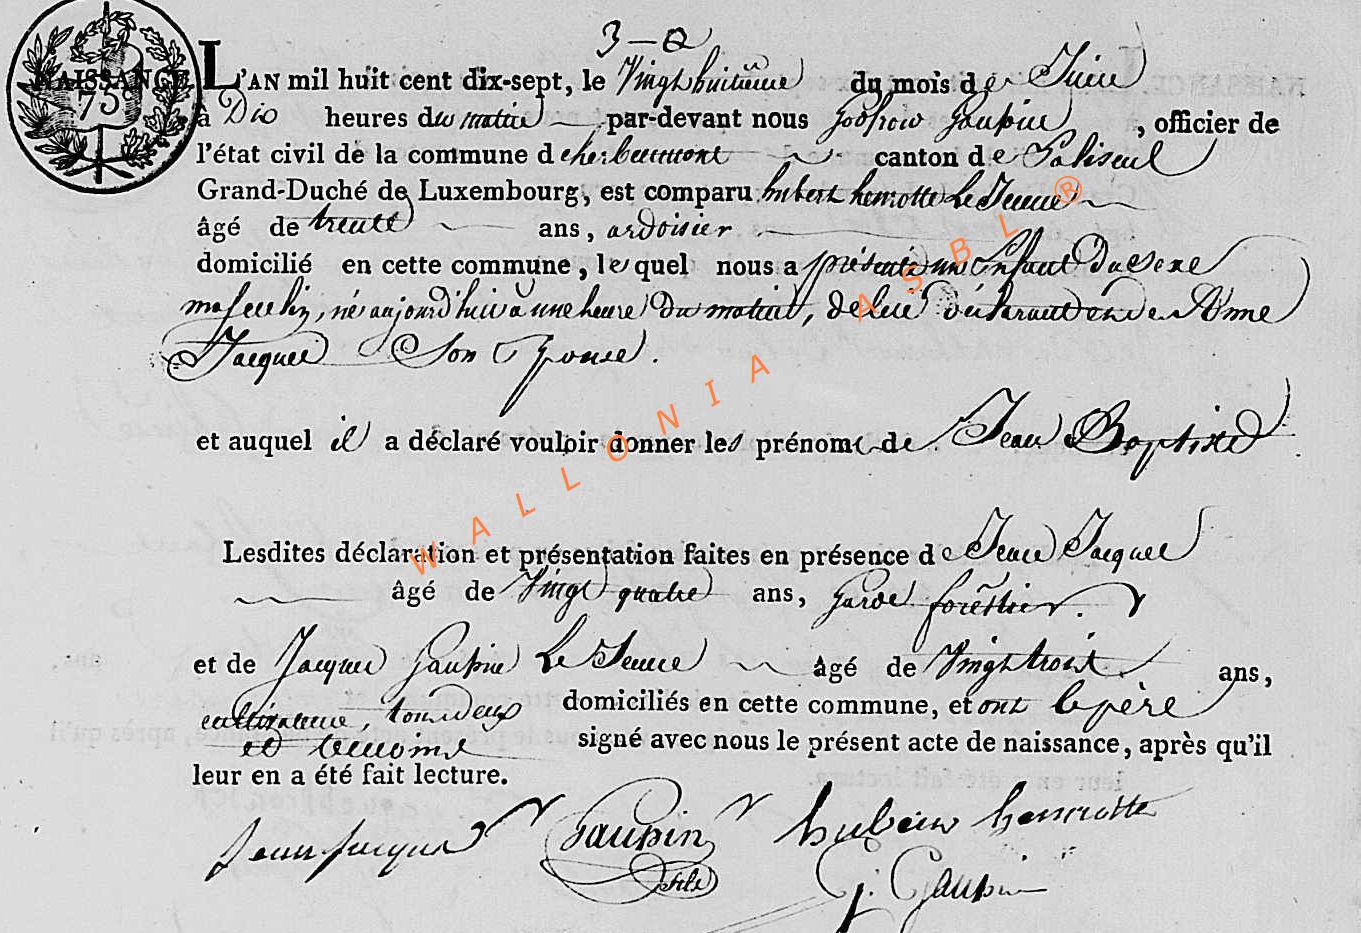 3
NAISSANCE. L'AN mil huit cent dix-sept, le Vingt huitieme du mois de Juin
75
à Dix heures du matin par-devant nous Godfrow Gaupin, officier de
l'état civil de la commune d'herbeumont canton de Paliseul
Grand-Duché de Luxembourg, est comparu hubert henrotte le Jeune
âgé de trente ans, ardoisier
domicilié en cette commune, lequel nous a présenté un Enfant du Sexe
masculin, né aujourd'huis à une heure du matin, de lui Déclarant et de Anne
Jacque Son Epouse.
et auquel il a déclaré vouloir donner les prénoms de Jean Baptiste
Lesdites déclaration et présentation faites en présence de Jean Jacque
âgé de Vingt quatre ans, garde forêstier.
et de Jacque Gaupin Le Jeune âgé de Vingt trois ans,
cultivateur, tous deux domiciliés en cette commune, et ont le père
et temoins signé avec nous le présent acte de naissance, après qu'il
leur en a été fait lecture.
Jean Jacque Gaupin fils hubert henrotte
G. Gaupin
WALLONIA ASBL ®